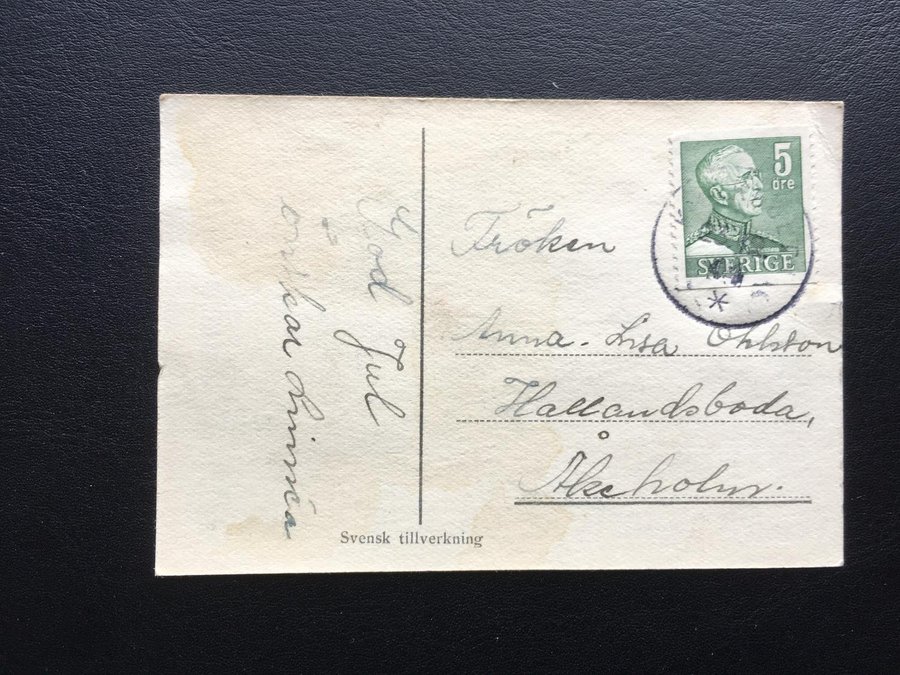 God Jul
önskar Linnéa
5
öre
SVERIGE
Fröken
Anna-Lisa Ohlson
Hallandsboda,
Åkeholm.
Svensk tillverkning